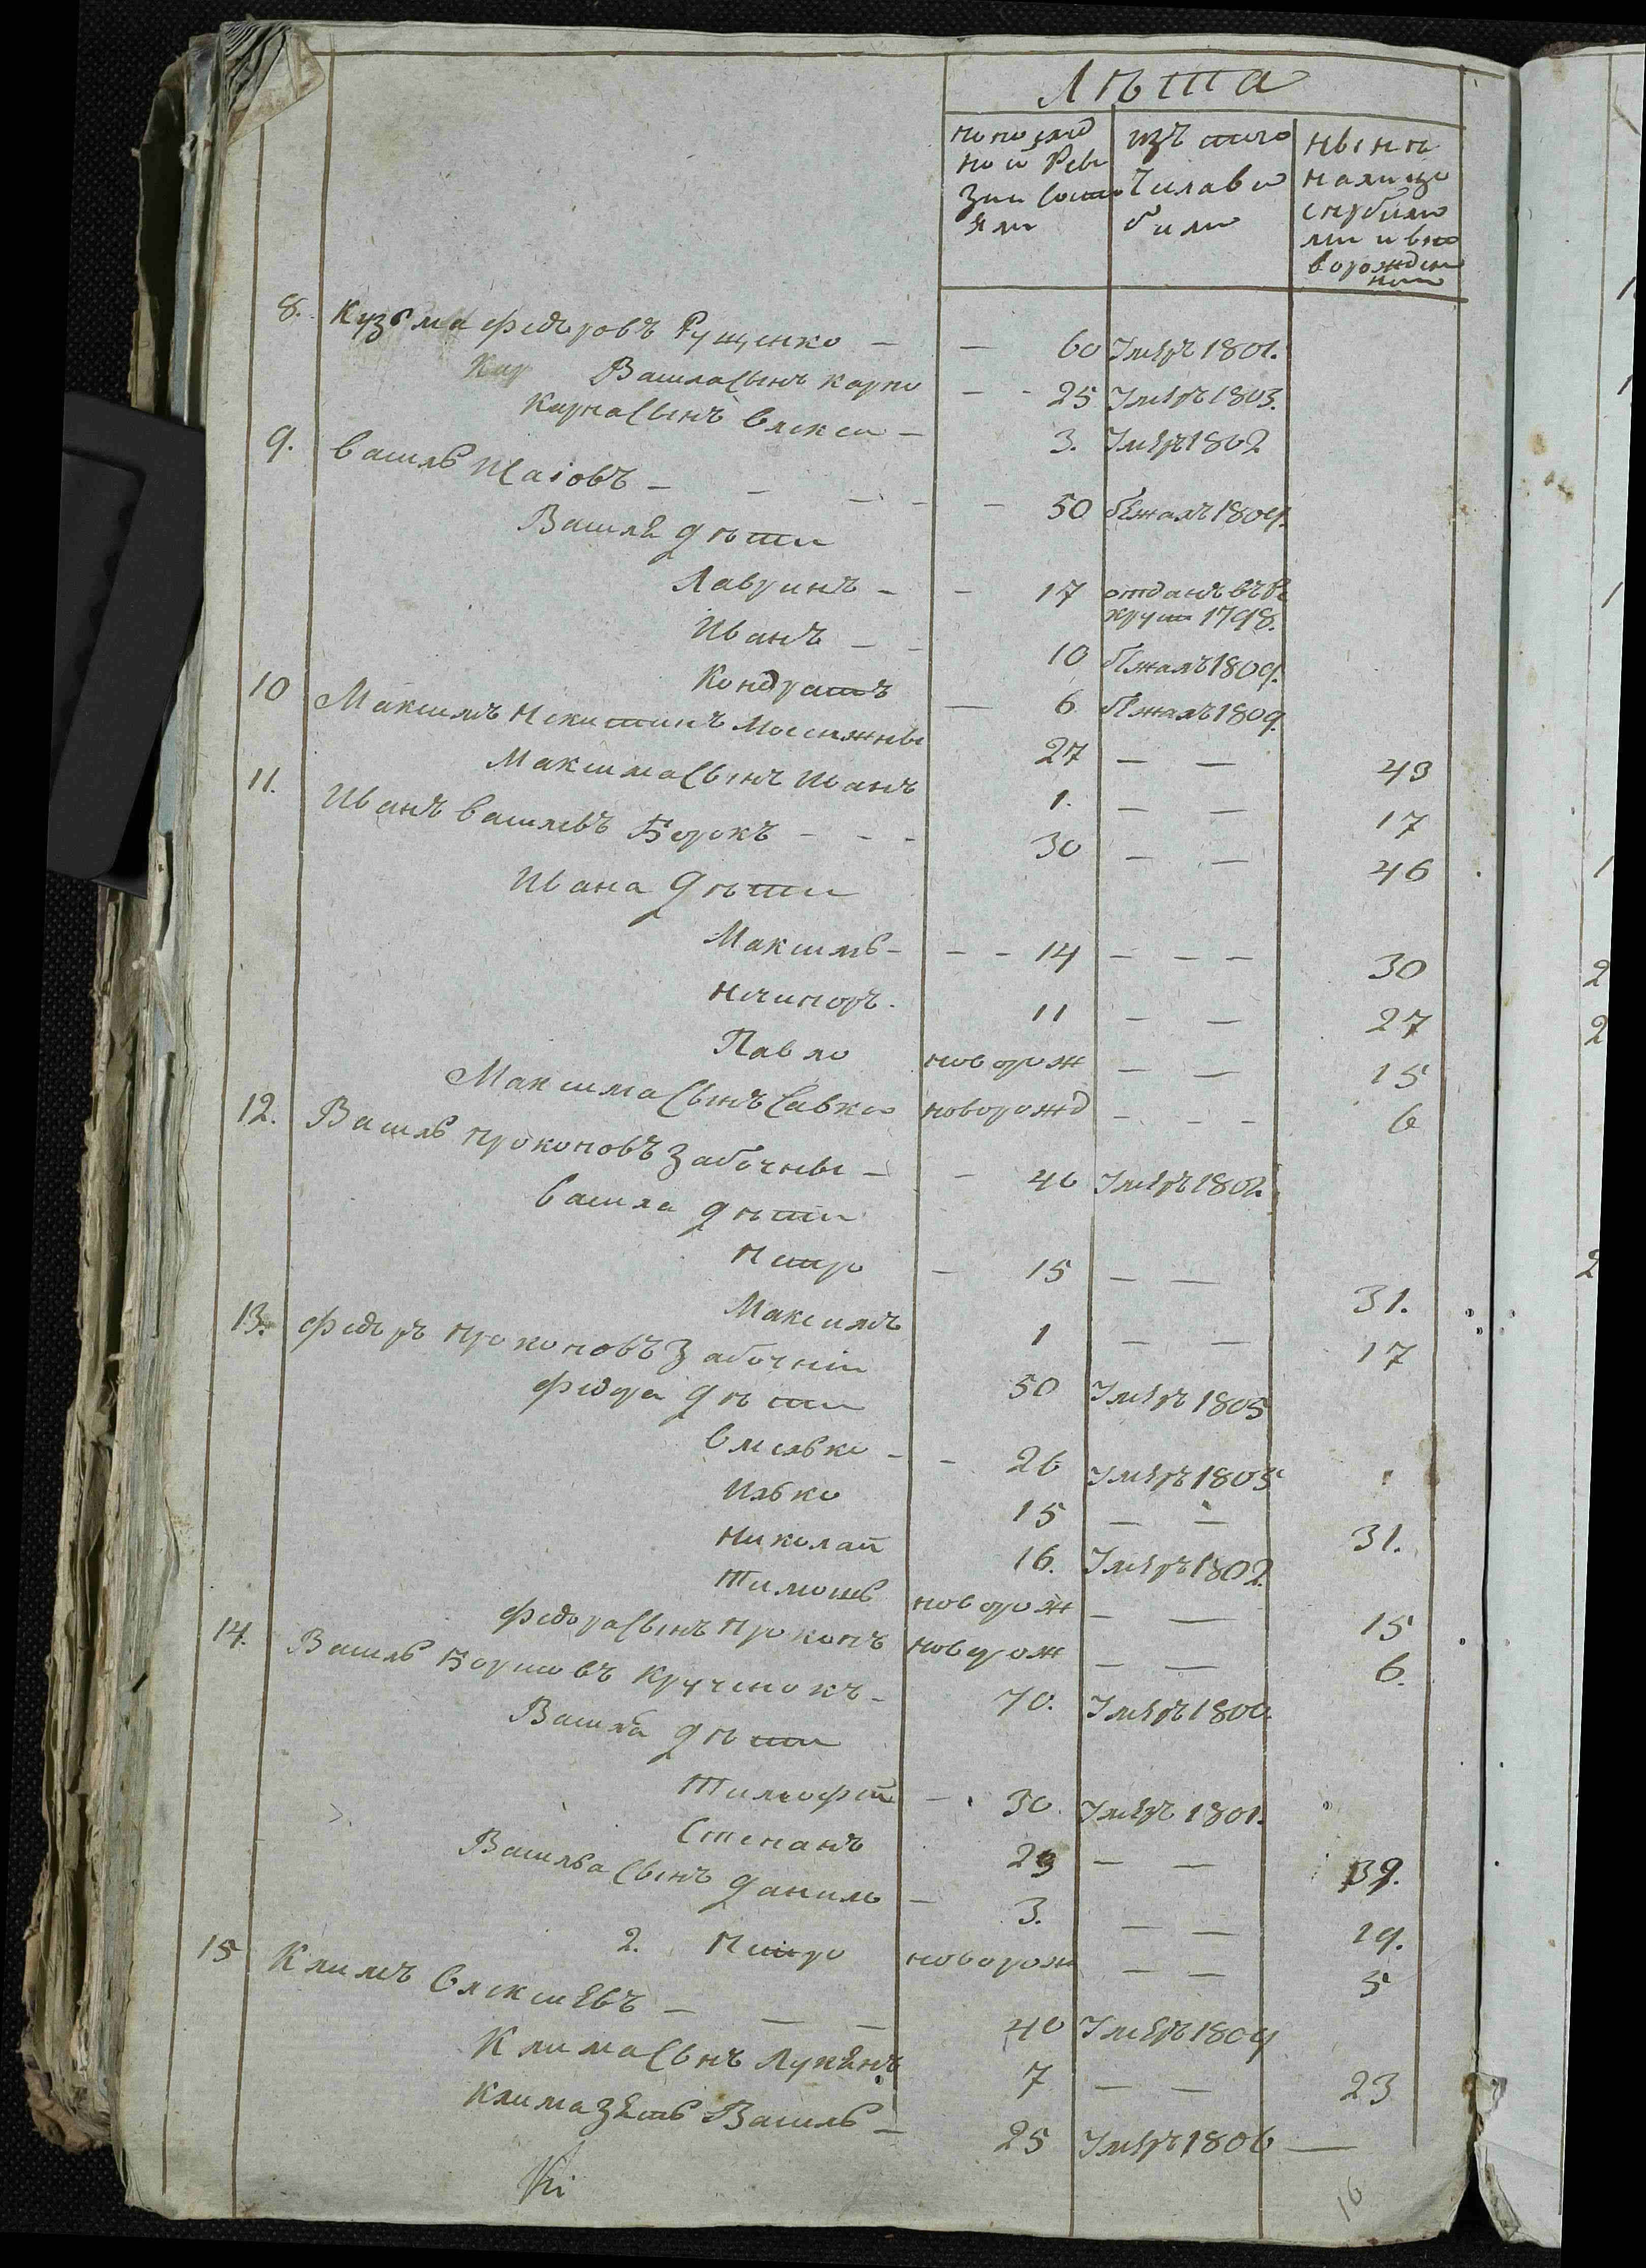 Лѣта
по послѣд
ной Реви
зии состо
яли
изъ того
числа вы
были
нынѣ
на лицо
с прибыли
ми и вно
ворожден
ными
8. Кузьма Федоровъ Рущенко — — 60 Умеръ 1801.
Василя Сынъ Карпо — - 25 Умеръ 1803.
Карпа Сынъ Олекси — 3. Умеръ 1802
9. Василь Исаіовъ — — — — — 50 бежалъ 1809.
Василя дѣти
Лавринъ — - 17 отданъ въ Ре
круты 1798.
Иванъ — - 10 бежалъ 1809.
Кондратъ — 6 бежалъ 1809.
10 Максимъ Никитинъ Мосижны 27 — — 43
Максима Сынъ Иванъ 1. — — 17
11. Иванъ Василевъ Борокъ - - - 30 — — 46
Ивана дѣти
Максимъ - - - 14 — — — 30
Ничипоръ. 11 — — 27
Павло новорож — — 15
Максима Сынъ Савко новорожд - - - 6
12. Василь Прокоповъ Забочны — - 46 Умеръ 1802.
Василя дѣти
Петро — 15 — — 31.
Максимъ 1 — — 17
13. Федоръ Прокоповъ Забочнии 50 Умеръ 1805
Федора дѣти
Омелько - - 26 Умеръ 1805
Илько 15 — — 31.
Николай 16. Умеръ 1802.
Тимошь новорож — — 15
Федора Сынъ Прокопъ новорож — — 6.
14. Василь Борисовъ Крученокъ - 70. Умеръ 1800.
Василя дѣти
Тимофей — 30. Умеръ 1801.
Степанъ 23 — — 39.
Василья Сынъ Данило — 3. — — 19.
2. Петро новорож — — 5
15 Климъ Олексіевъ — — — 40 Умеръ 1809
Клима Сынъ Лукянъ 7 — — 23
Клима Зять Василь — 25 Умеръ 1806 —
16